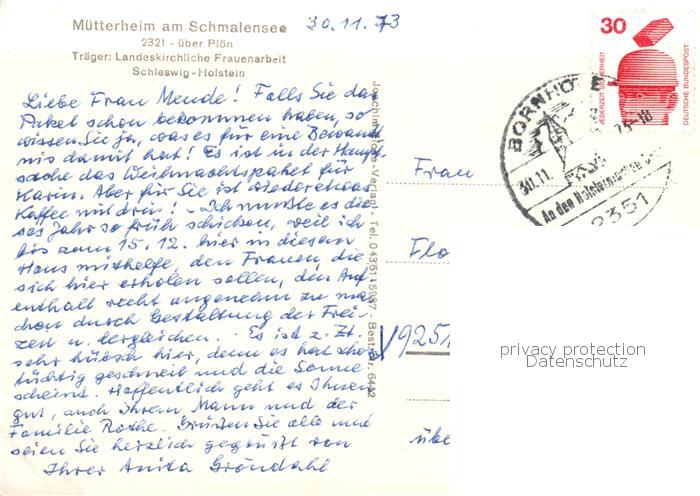 Mütterheim am Schmalensee
2321 - über Plön
Träger: Landeskirchliche Frauenarbeit
Schleswig-Holstein
30.11.73
Liebe Frau Mende! Falls Sie das
Paket schon bekommen haben, so
wissen Sie ja, was es für eine Bewandt
nis damit hat! Es ist in der Haupt
sache das Weihnachtspaket für
Karin. Aber für Sie ist wieder etwas
Kaffee mit drin! - Ich mußte es die
ses Jahr so früh schicken, weil ich
bis zum 15.12. hier in diesem
Haus mithelfe, den Frauen, die
sich hier erholen sollen, den Auf
enthalt recht angenehm zu ma
chen durch Gestaltung der Frei-
zeit u. dergleichen. - Es ist z. Zt.
sehr hübsch hier, denn es hat schon
tüchtig geschneit und die Sonne
scheint. Hoffentlich geht es Ihnen
gut, auch Ihrem Mann und der
Familie Rothe. Grüßen Sie alle und
seien Sie herzlich gegrüßt von
Ihrer Anita Gröndahl
Verlag · Tel. 04351 · Bestr. Nr. 6442
Frau
Flo
9251
übe
30
JEDERZEIT SICHERHEIT
DEUTSCHE BUNDESPOST
BORNHÖ
30.11.
73-18
An den Holsteinischen
2351
privacy protection
Datenschutz